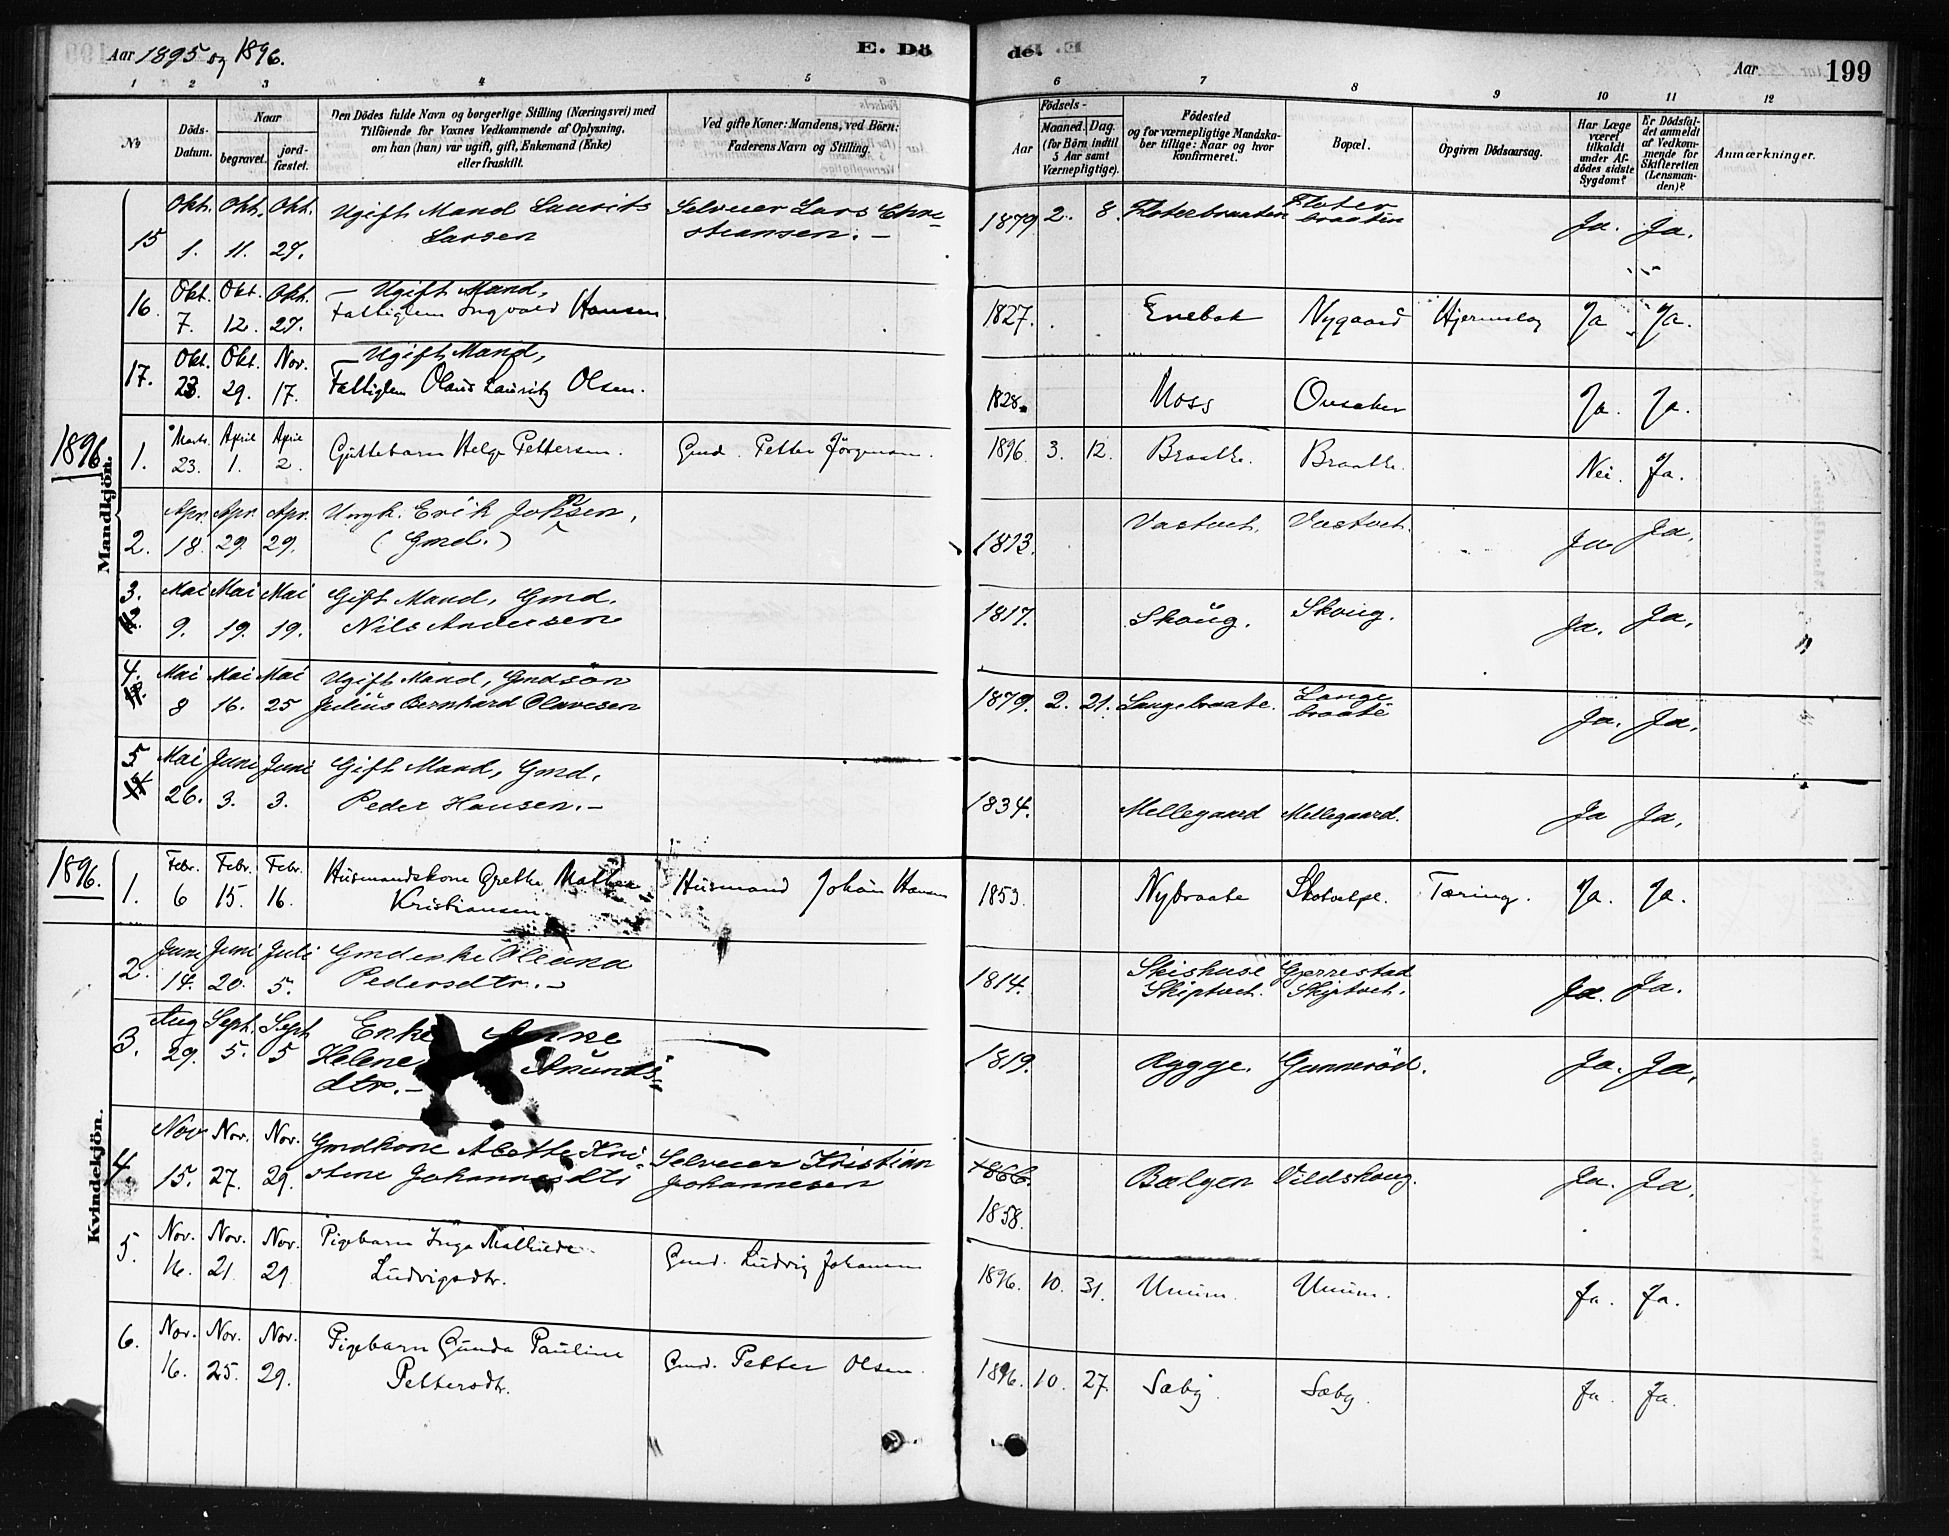 Aar 1895 og 1896.
E. Dö
de.
Aar
199
1 2 3 4 5 6 7 8 9 10 11 12
No
Döds-Datum.
Naar
begravet.
jord-fæstet.
Den Dödes fulde Navn og borgerlige Stilling (Næringsvei) med
Tilföiende for Voxnes Vedkommende af Oplysning,
om han (hun) var ugift, gift, Enkemand (Enke)
eller fraskilt.
Ved gifte Koner: Mandens, ved Börn:
Faderens Navn og Stilling.
Födsels-
Aar
Maaned. Dag.
(for Börn indtil
5 Aar samt
Værnepligtige).
Födested
og for værnepligtige Mandska-
ber tillige: Naar og hvor
konfirmeret.
Bopæl.
Opgiven Dödsaarsag.
Har Læge
været
tilkaldt
under Af-
dödes sidste
Sygdom?
Er Dödsfal-
det anmeldt
af Vedkom-
mende for
Skifteretten
(Lensman-
den)?
Anmærkninger.
15 Okt. 1. Okt. 11. Okt. 27. Ugift Mand Laurits
Larsen
Selveier Lars Chri-
stiansen. —
1879 2. 8. Floterbraaten Floter
braaten Ja. Ja.
16. Okt. 7. Okt. 12. Okt. 27. Ugift Mand,
Fattiglem Ingvald Hansen
1827. Enebak Nygaard Hjerneslag Ja Ja.
17. Okt. 23. Okt. 29. Nov. 17. Ugift Mand,
Fattiglem Olaus Lauritz Olsen.
1828. Moss Ja. Ja.
1896
Mandkjön.
1. Marts. 23. April 1. April 2. Guttebarn Helge Pettersen. Gmd. Petter Jörgensen.
1896 3. 12. Braatte. Braatte. Nei. Ja.
2. Apr. 18. Apr. 29. Apr. 29. Ungk. Erik Johnsen,
(Gmd.)
1813. Vastvet. Vastvet. Ja Ja.
3. Mai 9. Mai 19. Mai 19. Gift Mand, Gmd.
Nils Andersen
1817. Skoug. Skoug. Ja. Ja.
4. Mai 8 Mai 16. Mai 25 Ugift Mand, Gmdsön
Julius Bernhard Olavesen
1879. 2. 21. Langebraate. Lange
braate Ja. Ja.
5 Mai 26. Juni 3. Juni 3. Gift Mand, Gmd.
Peder Hansen. —
1834. Mellegaard Mellegaard. Ja Ja.
1896.
Kvindekjön.
1. Febr. 6 Febr. 15. Febr. 16. Husmandskone Grethe Mathea
Kristiansen
Husmand Johan Hansen
1853. Nybraate Tæring. Ja. Ja.
2. Juni 14. Juni 20. Juli 5. Gmdenke Oleana
Pedersdtr. —
1814. Skishuse
Skiptvet. Gjerrestad
Skiptvet. Ja. Ja.
3. Aug 29. Sept. 5. Sept 5 Enke Anne
Helene Anunds-
dtr. —
1819. Rygge. Gunneröd. Ja. Ja.
4. Nov 15. Nov. 27. Nov. 29. Gmdkone Alette Kri-
stine Johannesdtr
Selveier Kristian
Johannesen
1866.
1858.
Bælgen Vildskoug. Ja. Ja.
5. Nov. 16. Nov. 21. Nov. 29. Pigebarn Inga Mathilde
Ludvigsdtr.
Gmd. Ludvig Johansen
1896. 10. 31. Unum. Unum. Ja. Ja.
6. Nov. 16. Nov. 25. Nov. 29. Pigebarn Gunda Pauline
Pettersdtr.
Gmd. Petter Olsen.
1896. 10. 27. Sæby. Sæby. Ja. Ja.